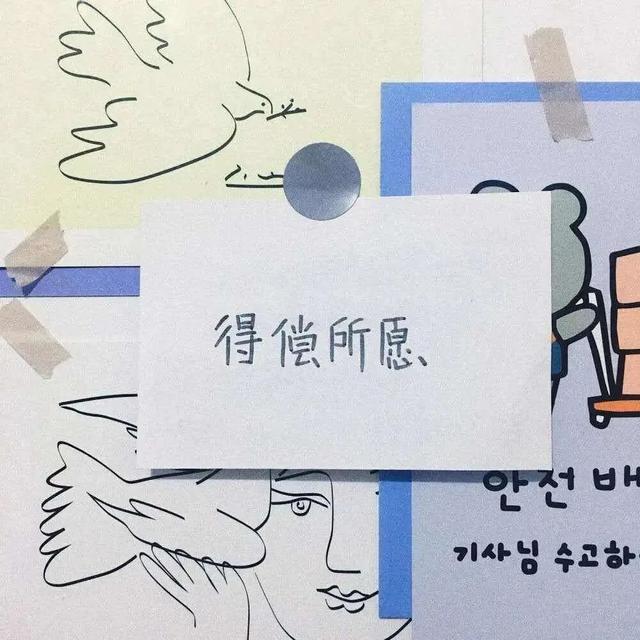 得偿所愿
안전 배
기사님 수고하